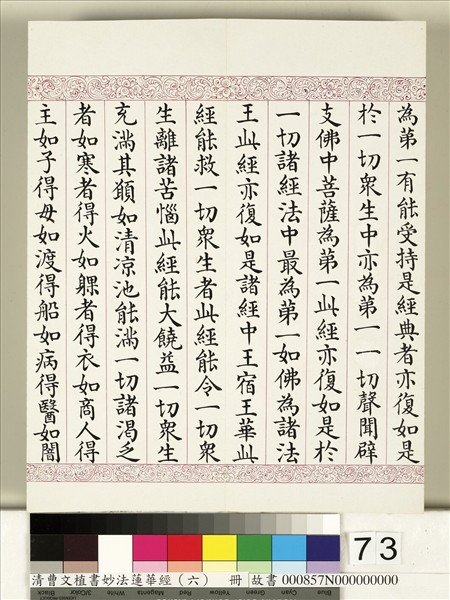 為第一有能受持是經典者亦復如是
扵一切衆生中亦為第一一切聲聞辟
支佛中菩薩為第一此經亦復如是扵
一切諸經法中最為第一如佛為諸法
王此經亦復如是諸經中王宿王華此
經能救一切衆生者此經能令一切衆
生離諸苦惱此經能大饒益一切衆生
充滿其願如清凉池能滿一切諸渴乏
者如寒者得火如躶者得衣如商人得
主如子得母如渡得船如病得醫如闇
73
清曹文植書妙法蓮華經（六） 冊 故書 000857N000000000
Black 3/Color White Magenta Red Yellow Green Cyan Blue